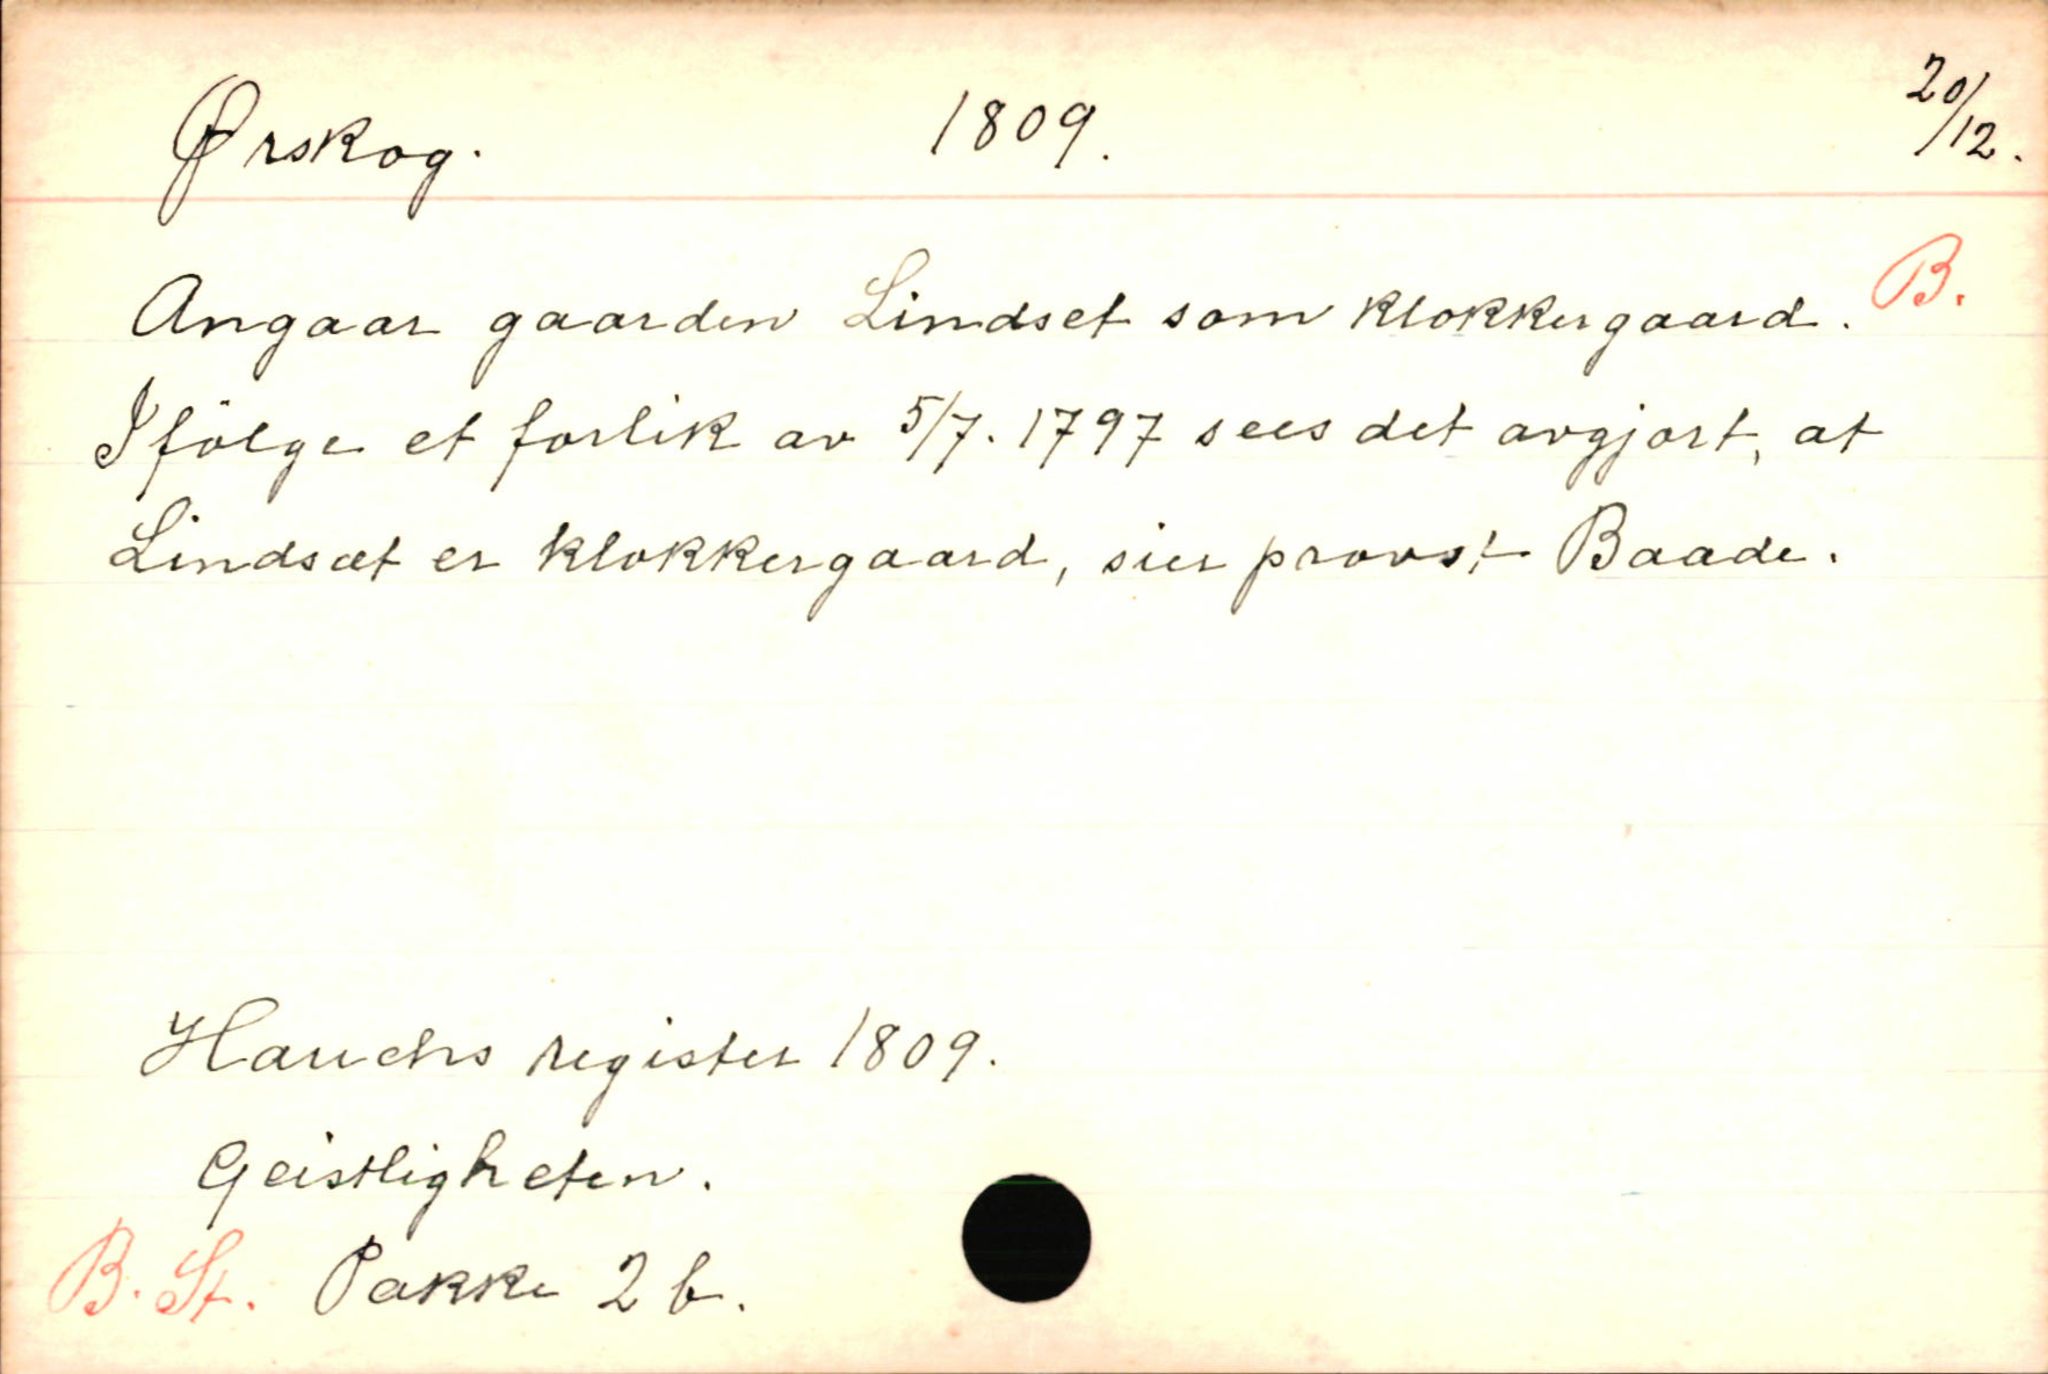 Ørskog. 1809. 20/12.
Angaar gaarden Lindset som klokkergaard. B.
Ifölge et forlik av 5/7. 1797 sees det avgjort, at
Lindsæt er klokkergaard, sier provst Baade.
Hauchs register 1809.
Geistligheten.
B. St. Pakke 2 b.